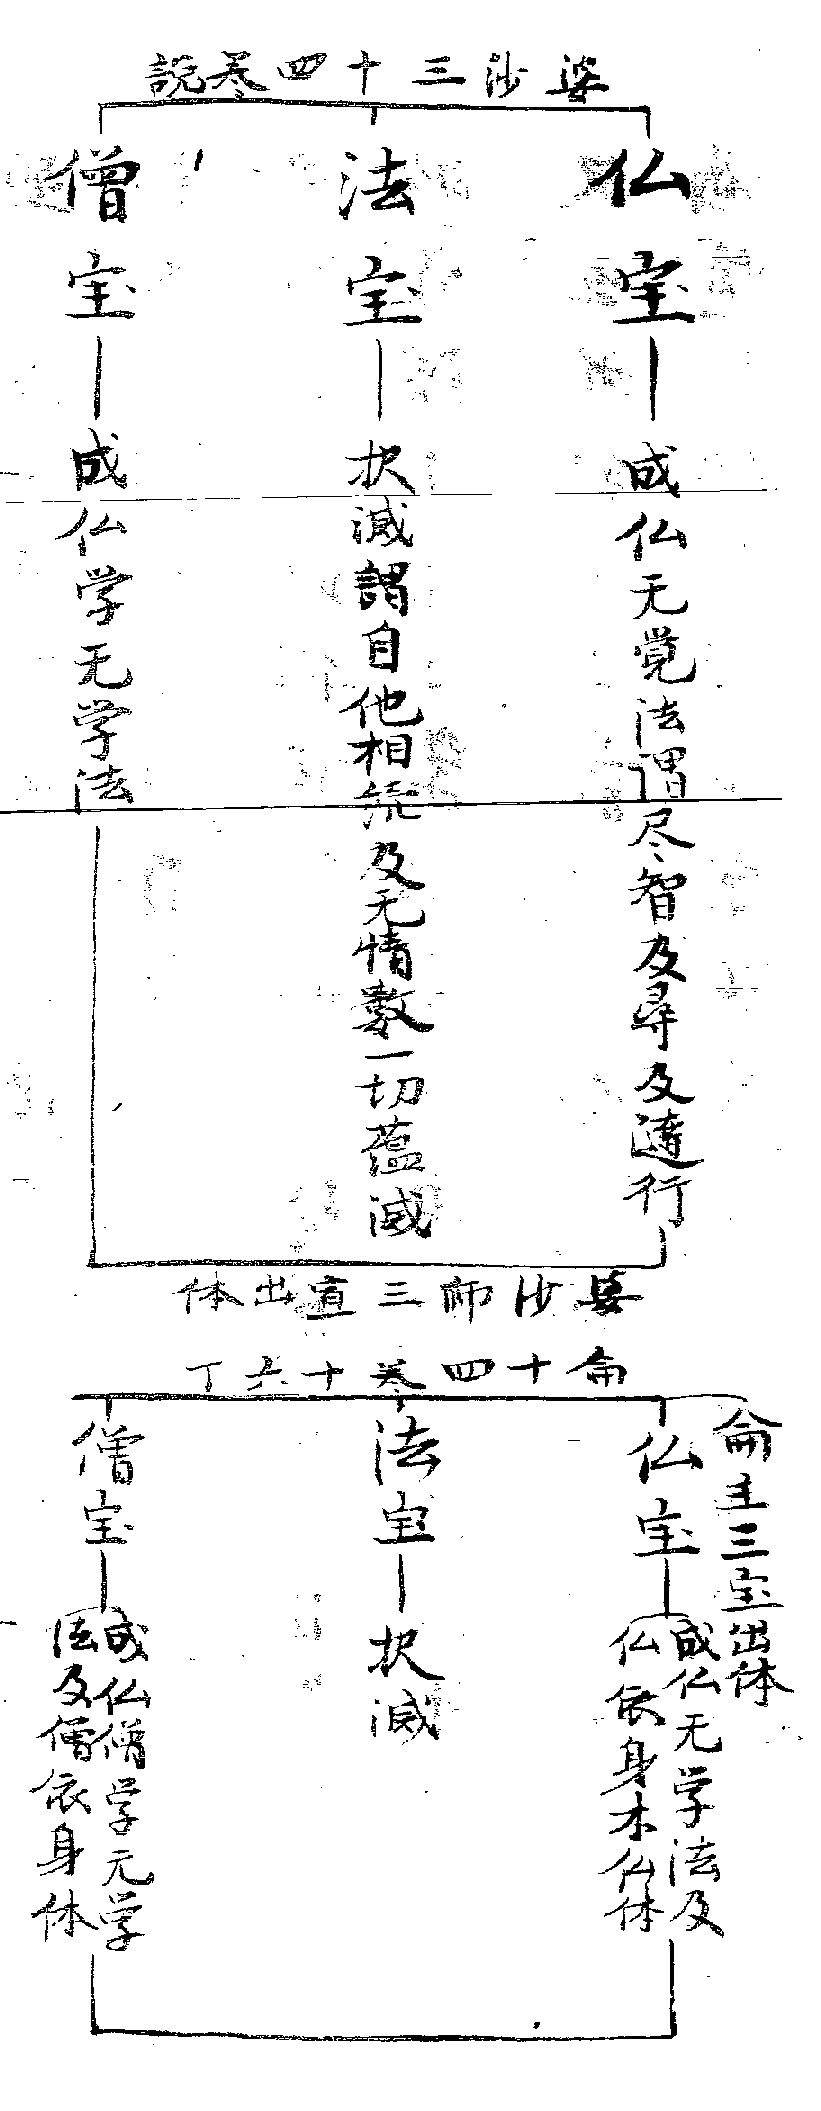 婆沙三十四卷説
仏宝
成仏无覚法謂尽智及尋及随行
法宝
択滅謂自他相続及无情数一切蘊滅
僧宝
成仏学无学法
婆沙師三宝出体
侖十四卷十六丁
侖主三宝出体
仏宝
成仏无学法及
仏依身本仏体
法宝
択滅
僧宝
成仏僧学无学
法及僧依身体